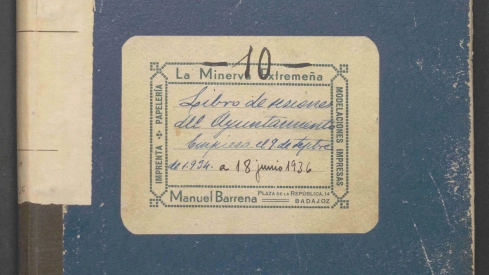 — 10 —
La Minerva Extremeña
IMPRENTA PAPELERÍA
Libro de sesiones
del Ayuntamiento
Empieza el 9 de
de 1.934. a 18 junio 1936
MODELACIONES IMPRESAS
Manuel Barrena
PLAZA DE LA REPÚBLICA, 14
BADAJOZ